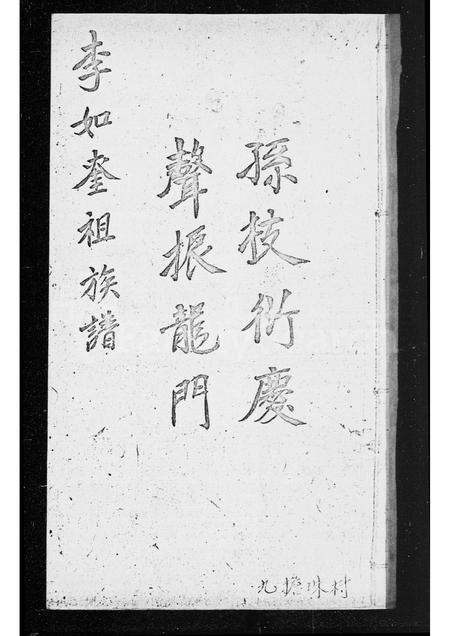 孫枝衍慶
聲振龍門
李如奎祖族譜
九擔珠村